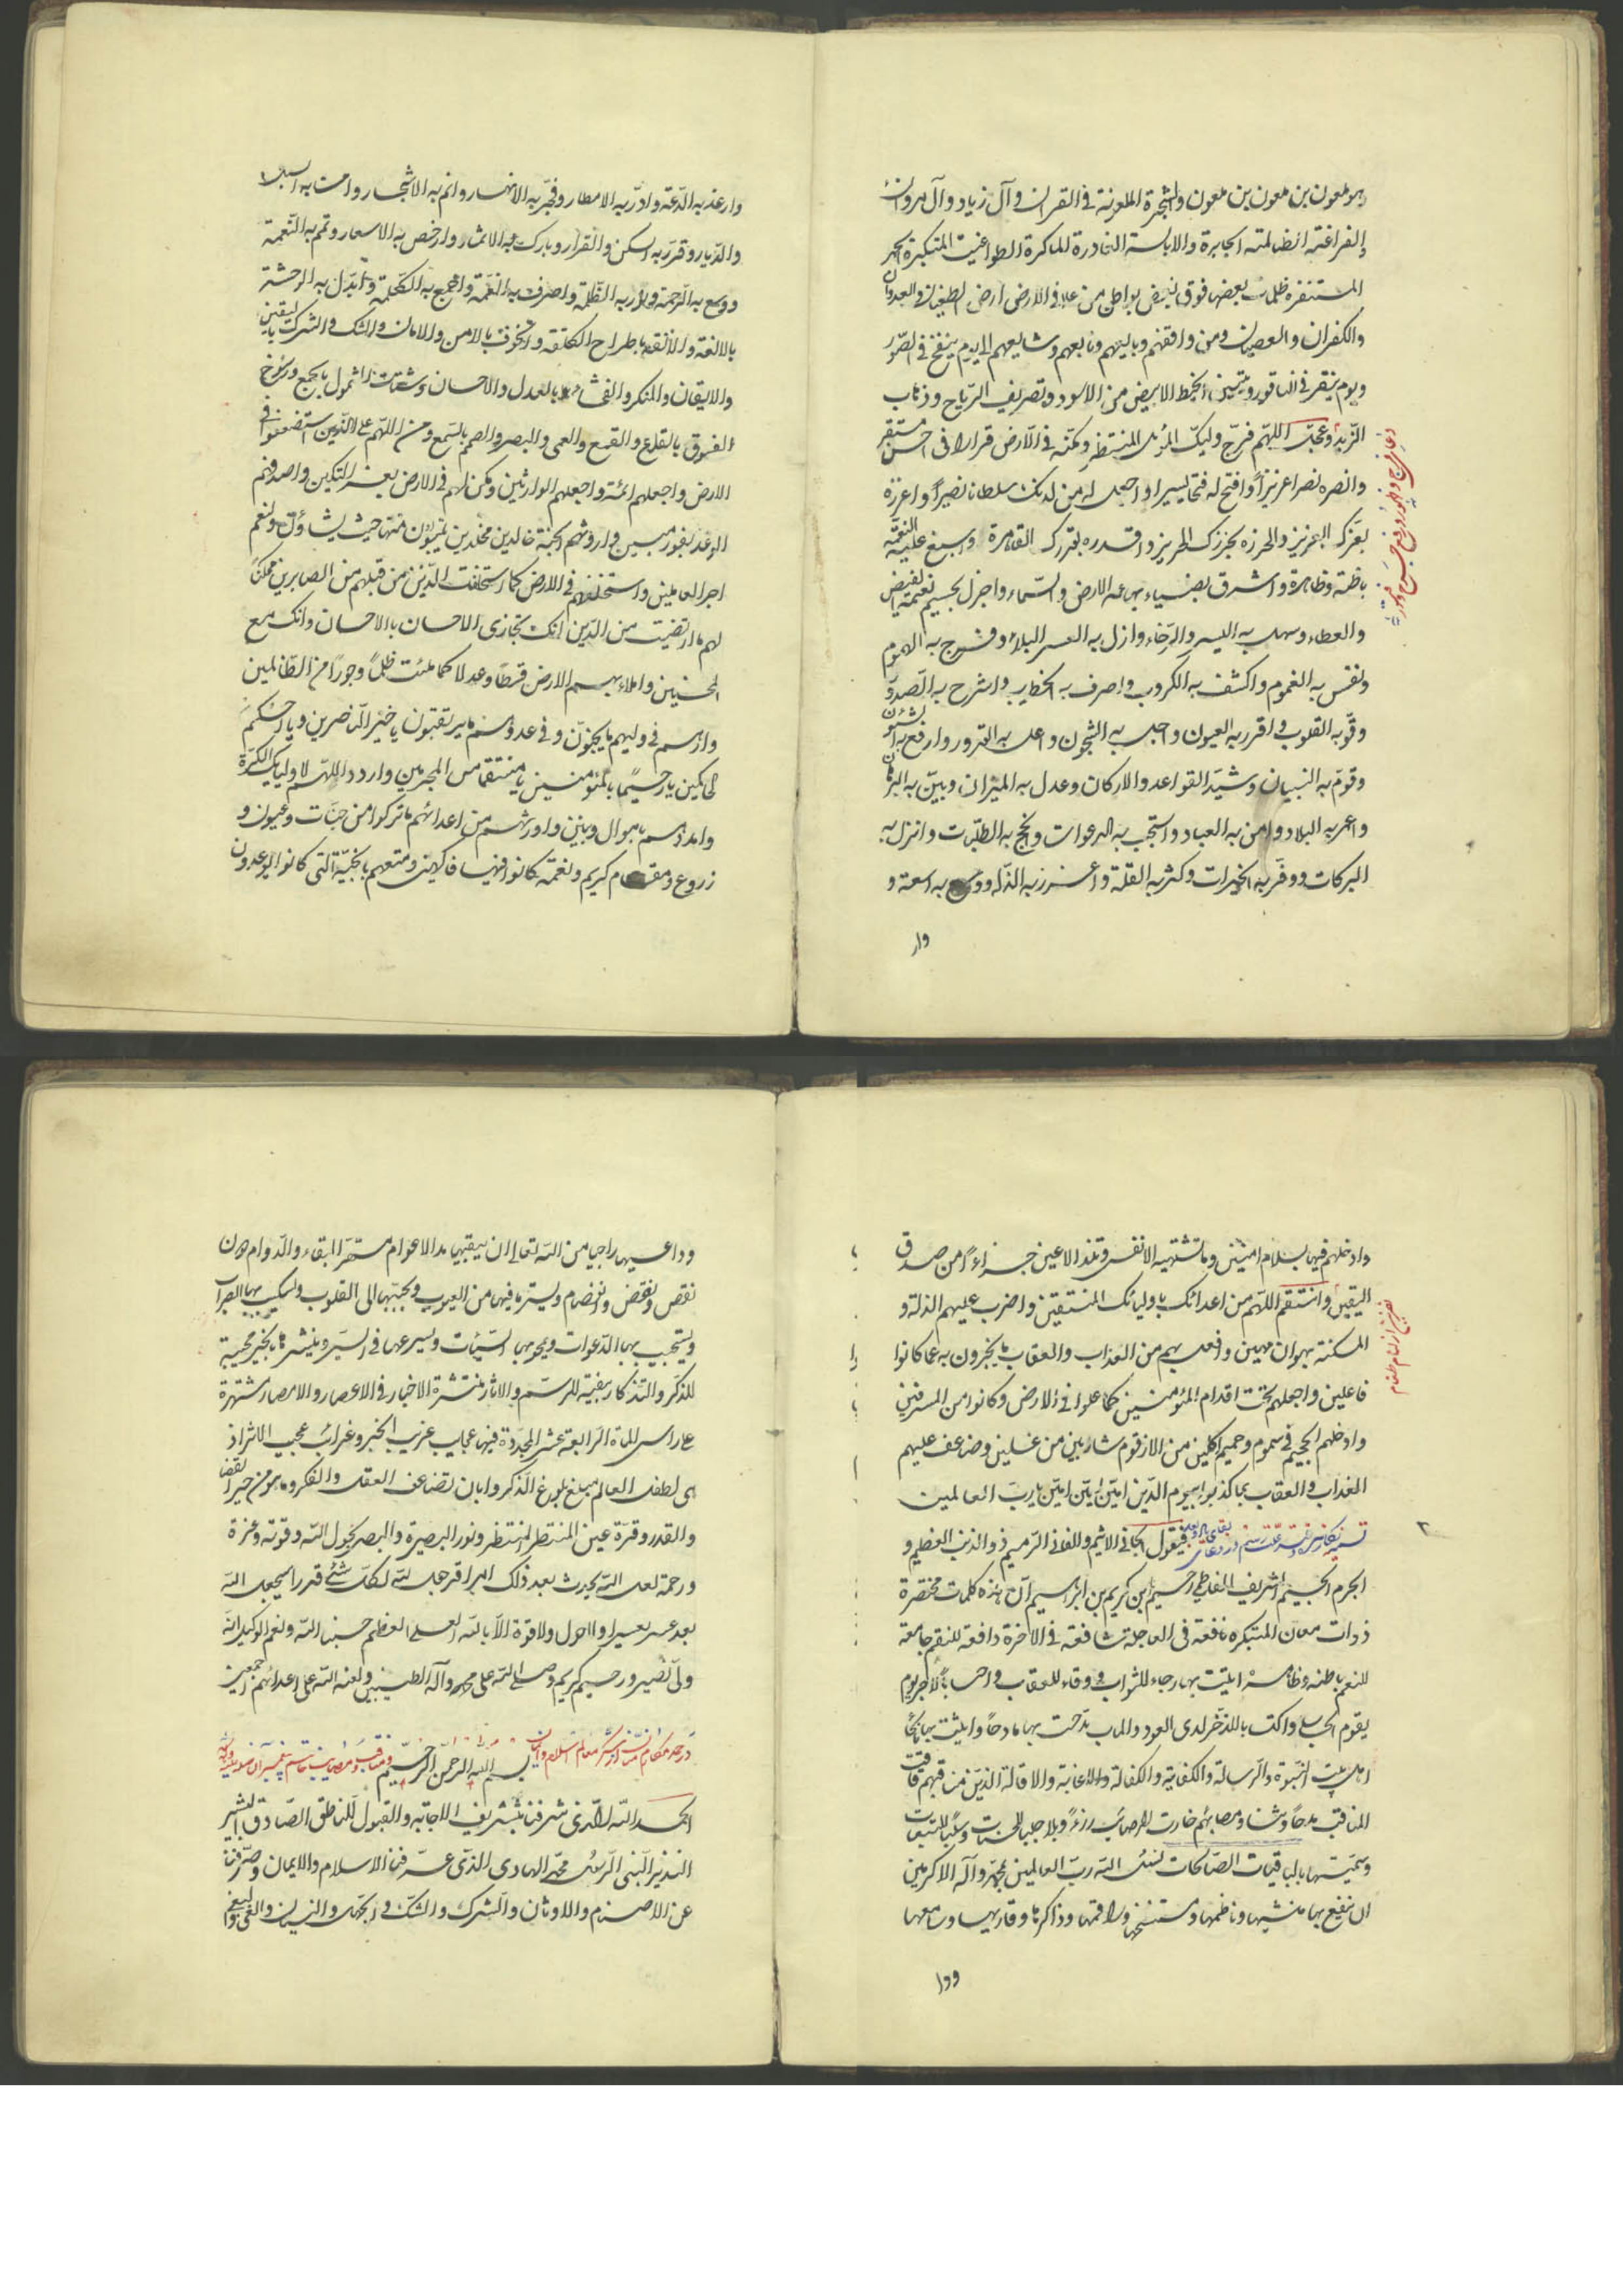 هو ملعون بن ملعون بن ملعون والشجرة الملعونة في القران وآل زياد وآل مروان
الفراعنة الضالمة الجابرة والابالسة الغادرة الماكرة الطواغيت المتكبرة
المستنفره ظلمات بعضها فوق بعض من علا في الارض ارض الطغيان والعدوان
والكفران والعصيان ومن وافقهم وبايعهم وتابعهم وشايعهم الى يوم ينفخ في الصور
ويوم ينقر في الناقور ويتبين الخيط الابيض من الاسود وتصريف الرياح وذهاب
الزبد وعجل اللهم فرج وليك المنتظر ومكنه في الارض قرارا في احسن مستقر
وانصره نصرا عزيزاً وافتح له فتحا يسيرا واجعل له من لدنك سلطانا نصيراً واعززه
بعزك العزيز واحرزه بحرزك الحريز واقدره بقدرتك القاهرة واسبغ عليه النعمة
باطنة وظاهرة واشرق بضياء بهائه الارض والسماء واجزل بجسيم نعمته الفيض
والعطاء وسهل به اليسر والرخاء وازل به العسر والبلاء وفرج به الهموم
ونفس به الغموم واكشف به الكروب واصرف به الخطايب واشرح به الصدور
وقو به القلوب واقرر به العيون واجلب به الشجون واعل به القدور وارفع به الشئون
وقوم به البنيان وشيد القواعد والاركان وعدل به الميزان وبين به البرهان
واعمر به البلاد وامن به العباد واستجب به الدعوات ونجح به الطلبات وانزل به
البركات ووفر به الخيرات وكثر به القلة واعزز به الذلة ووسع به السعة و
وار
وارغد به الدعة وادر به الامطار وفجر به الانهار وانم به الاشجار وامن به البلاد
والديار وقرر به السكن والقرار وبارك به الاثمار وارخص به الاسعار وتمم به النعمة
ووسع به الرحمة ونور به الظلمة واصرف به الغمة واجمع به الكلمة وابدل به الوحشة
بالالفة والكلفة والخوف بالامن والامان والشك والشرك باليقين
والايقان والمنكر والفحشاء بالعدل والاحسان وشتات الشمول بالجمع ورسوخ
الفسوق بالقلع والقمع والعمى والبصر والصمم بالسمع ومن اللهم على الذين استضعفوا في
الارض واجعلهم ائمة واجعلهم الوارثين ومكن لهم في الارض بعز التمكين واصدقهم
الوعد بفوز مبين واورثهم الجنة خالدين مخلدين يتبوؤن منها حيث يشاؤن ونعم
اجر العاملين واستخلفهم في الارض كما استخلفت الذين من قبلهم من الصابرين ممكناً
لهم ما ارتضيت من الدين انك تجازى الاحسان بالاحسان وانك مع
المحسنين واملاء بهم الارض قسطاً وعدلا كما ملئت ظلماً وجوراً من الظالمين
وارهم في وليهم ما يحبون وفي عدوهم ما يرتقبون يا خير الناصرين ويا احكم
الحاكمين يا رحيماً بالمؤمنين يا منتقما من المجرمين واردد اللهم لاوليائك الكرة
وامددهم باموال وبنين واورثهم من اعدائهم ما تركوا من جنات وعيون و
زروع ومقام كريم ونعمة كانوا فيها فاكهين ومتعهم بالجنة التي كانوا يوعدون
وادخلهم فيها بسلام امنين وما تشتهيه الانفس وتلذ الاعين جزاءً من صدق
اليقين وانتقم اللهم من اعدائك باوليائك المنتقمين واضرب عليهم الذلة و
المسكنة بهوان مهين وافعل بهم من العذاب والعقاب ما يخزون به عما كانوا
فاعلين واجعلهم تحت اقدام المؤمنين كما علوا في الارض وكانوا من المسرفين
وادخلهم الجحيم في سموم وحميم اكلين من الازقوم شاربين من غسلين وضاعف عليهم
العذاب والعقاب بما كذبوا بيوم الدين امين امين امين يا رب العالمين
فيقول الجاني الاثيم والفاني الرميم ذو الذنب العظيم و
الجرم الجسيم الشريف الفاطمي رحيم ابن كريم بن ابراهيم ان هذه كلمات مختصرة
ذوات معان المبتكره نافعة في العاجلة شافعة في الاخرة دافعة للنقم جامعة
للنعم باطنه وظاهره ابليت بها رجاء للثواب ووقاء للعقاب واحتسابا لاجر يوم
يقوم الحساب واكتسابا للذخر لدى العود والماب مدحت بها مادحاً وابنت بها
اهل بيت النبوة والرسالة والكفاية والكفالة والاغاثة والاقالة الذين مناقبهم فاقت
المناقب مدحاً وشنا ومصائبهم صارت المصائب رزءً وبلا جلبا للحسنات وسلباً للتبعات
وسميتها بالباقيات الصالحات لنسئل الله رب العالمين بمحمد وآله الاكرمين
ان ينفع بها منشيها وناظمها ومستنسخها وراقمها وذاكرها وقاريها وسامعها
ووا
وداعيها راجيا من الله تعالى ان يبقيها مدى الاعوام مستقر البقاء والدوام دون
نقص ونقض وانفصام ويستر ما فيها من العيوب ويحببها الى القلوب
ويستجيب بها الدعوات ويمحو بها السيئات
للذكر والتذكار بقية للرسم والاثار منتشرة الاخبار في الاعصار والامصار مشتهرة
على راس المأة الرابعة عشر المجددة فيها عجايب غريب الخبر وغرائب عجيب الاثر اذ
هي لطف العالم مبلغ بلوغ الذكر وابان تضاعف العقل والفكر وما هو من خير القضا
والقدر وقرة عين المنتظر المنتظر ونور البصيرة والبصر بحول الله وقوته وعزة
ورحمة لعل الله يحدث بعد ذلك امرا قد جعل الله لكل شئ قدرا سيجعل الله
بعد عسر يسرا ولا حول ولا قوة الا بالله العلى العظيم حسبنا الله ونعم الوكيل انه
ولى نصير ورحيم كريم وصلى الله على محمد وآله الطيبين ولعنة الله على اعدائهم اجمعين
بسم الله الرحمن الرحيم
الحمد الله الذى شرفنا بتشريف الاجابة والقبول للناطق الصادق البشير
النذير النبى الرسول محمد الهادى الذى عرفنا الاسلام والايمان وصرفنا
عن الاصنام والاوثان والشرك والشك والجهل والنسيان والغى